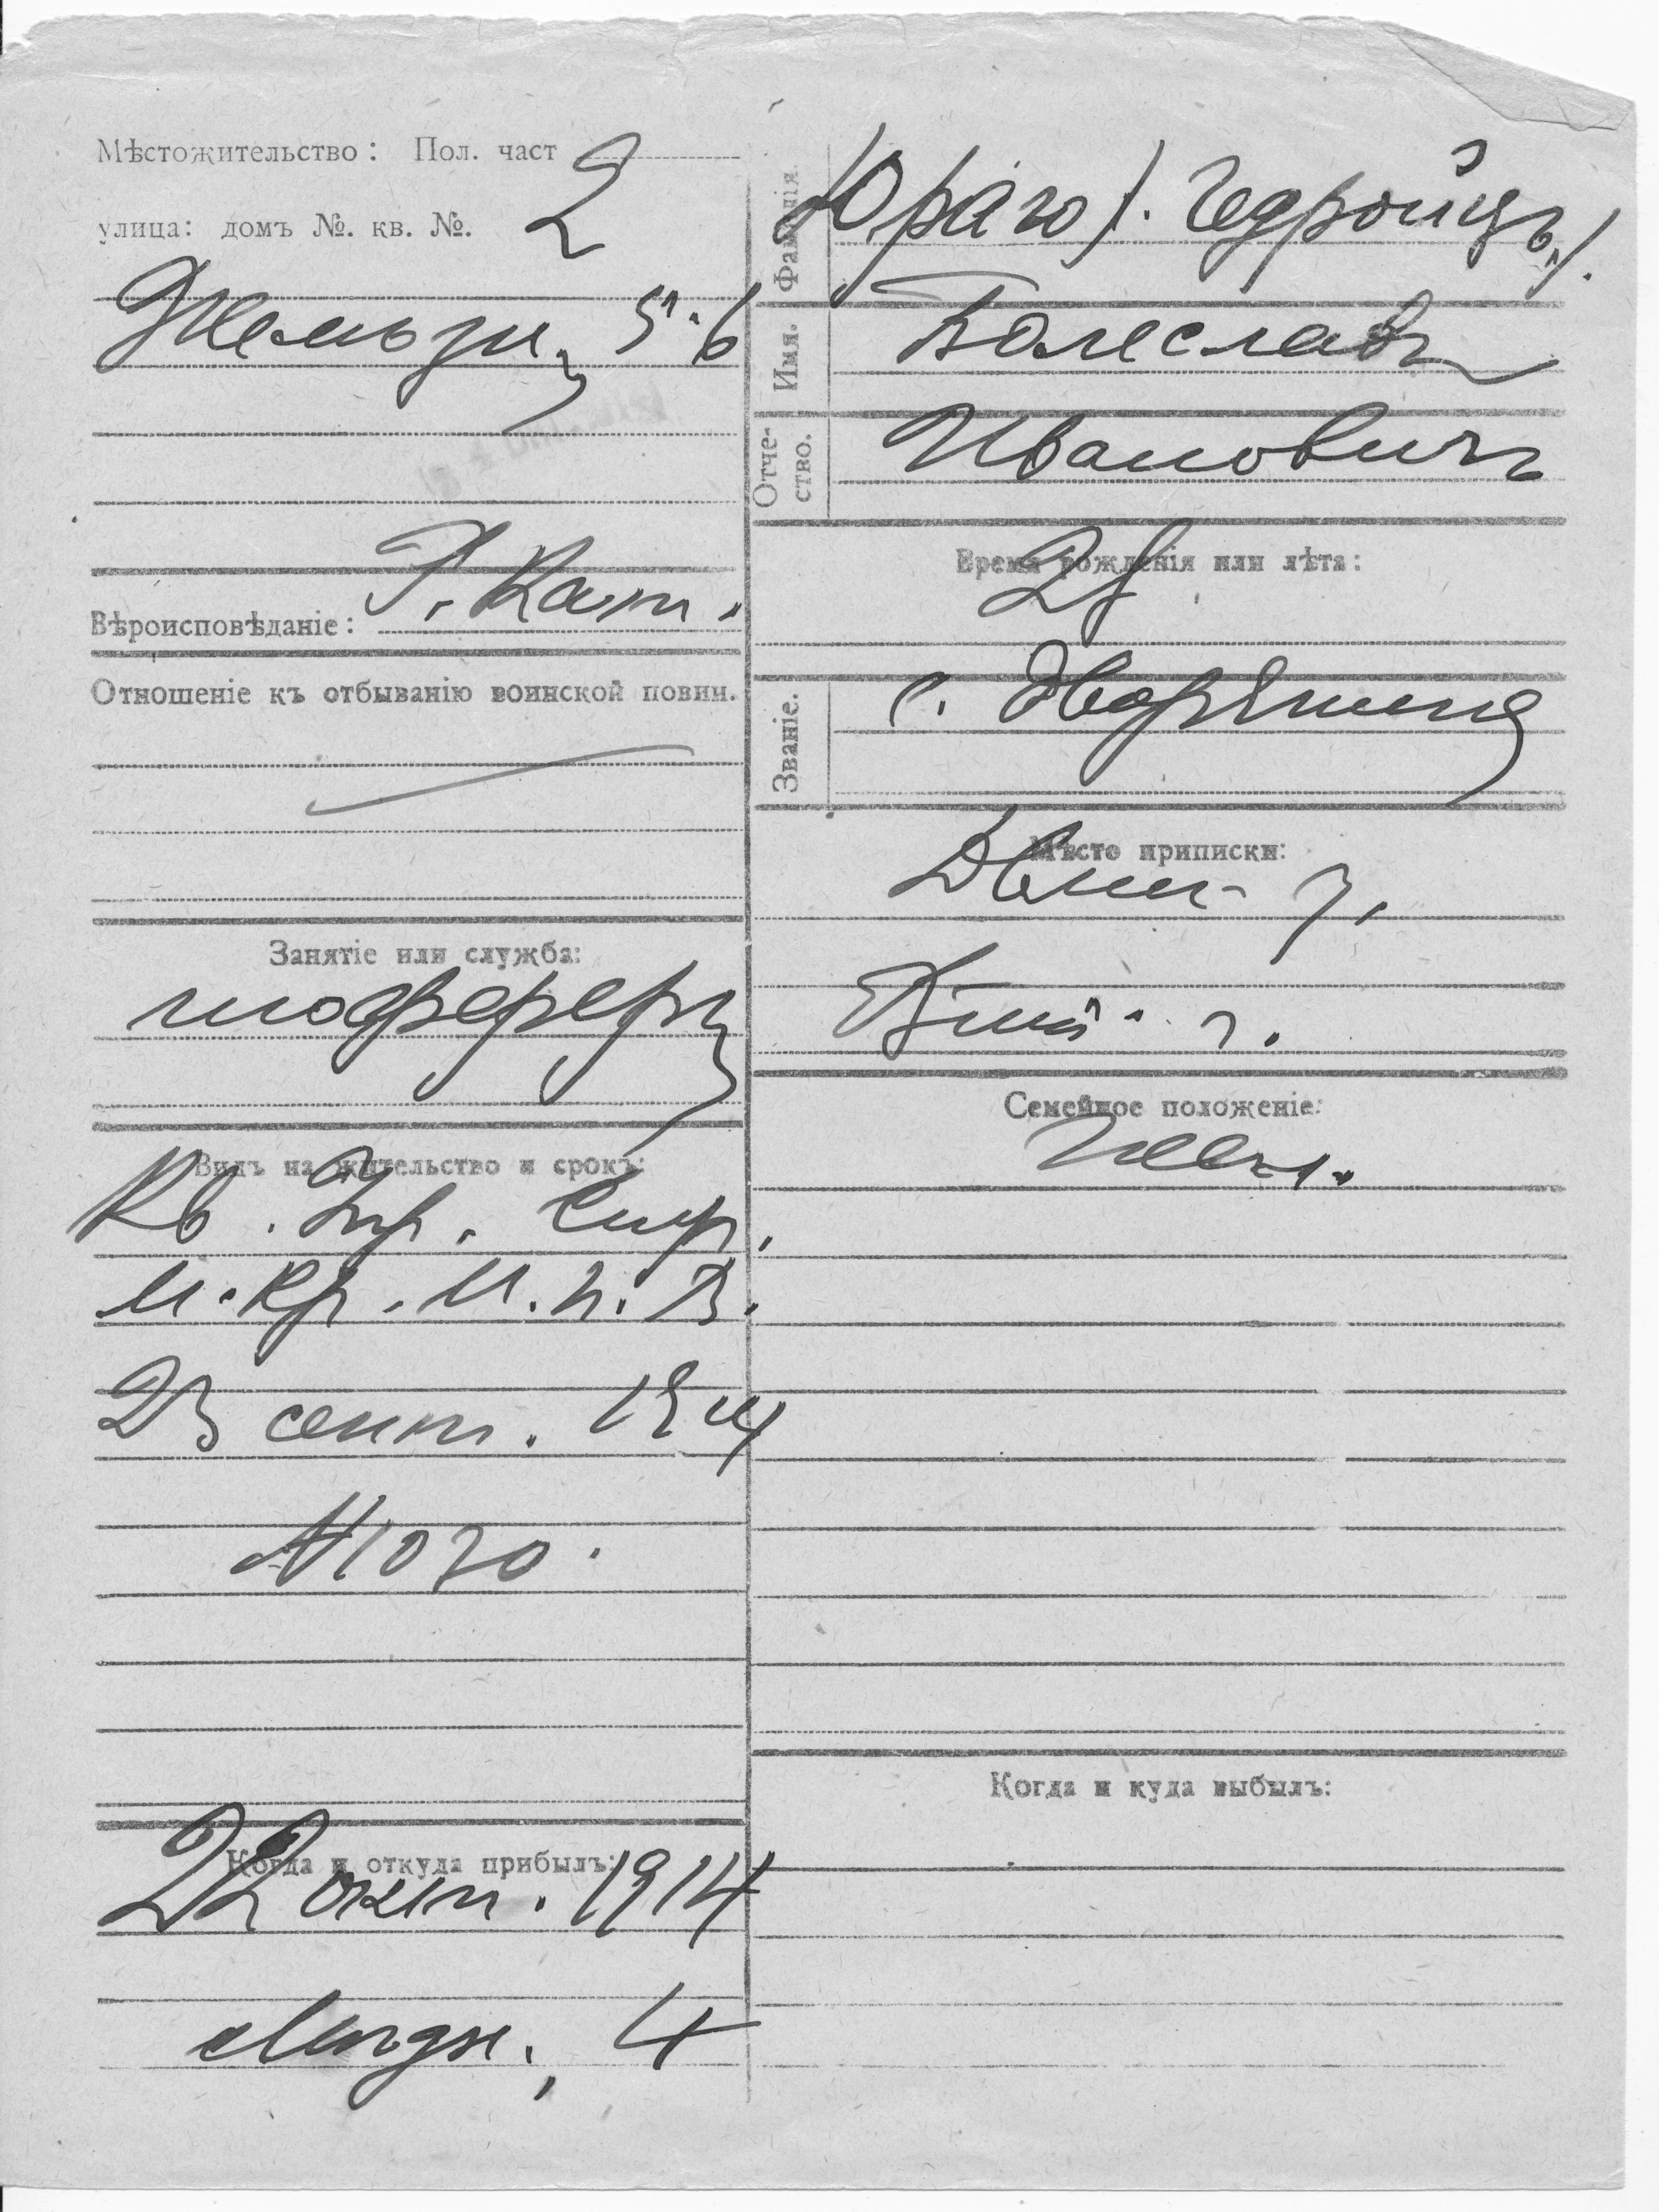 Мѣстожительство: Пол. част 2
улица: домъ №. кв. №.
5·6
Вѣроисповѣданіе: Р. Кат.
Отношеніе къ отбыванію воинской повин.
Занятіе или служба:
шофферъ
Видъ на жительство и срокъ:
Кв. Упр.
М. Кр. М. П. В.
23 сент. 1914
№ 1030.
Когда и откуда прибылъ:
22 окт. 1914
4
Фамилія. Юраго /. Гедройцъ./.
Имя. Болеславъ
Отче-
ство. Ивановичъ
Время рожденія или лѣта:
28
Званіе. с. дворянина
Мѣсто приписки:
Двин. у.
Вит. г.
Семейное положеніе:
Жен.
Когда и куда выбылъ: